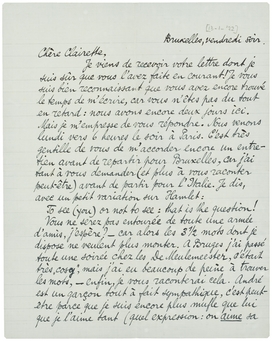 Bruxelles, vendredi soir.
Chère Clairette,
Je viens de recevoir votre lettre dont je
suis sûr que vous l'avez faite en courant! Je vous
suis bien reconnaissant que vous avez encore trouvé
le temps de m'écrire, car vous n'êtes pas du tout
en retard: nous avons encore deux jours ici.
Mais je m'empresse de vous répondre. Nous venons
lundi vers 6 heures le soir à Paris. C'est très
gentille de vous de m'accorder encore un entre-
tien avant de repartir pour Bruxelles, car j'ai
tant à vous demander (et plus à vous raconter
peut-être) avant de partir pour l'Italie. Je dis,
avec un petit variation sur Hamlet:
To see (you) or not to see: that is the question!
Vous ne serez pas entourée de toute une armée
d'amis, j'espère? — car alors les 3½ mots dont je
dispose ne veulent plus monter. A Bruges j'ai passé
toute une soirée chez les De Meulemeester, c'était
très, mais j'ai eu beaucoup de peine à trouver
les mots, — enfin, je vous raconterai cela. André
est un garçon tout à fait sympathique, c'est peut-
être parce que je suis encore plus mufle que lui
que je l'aime tant (quel expression: on aime sa